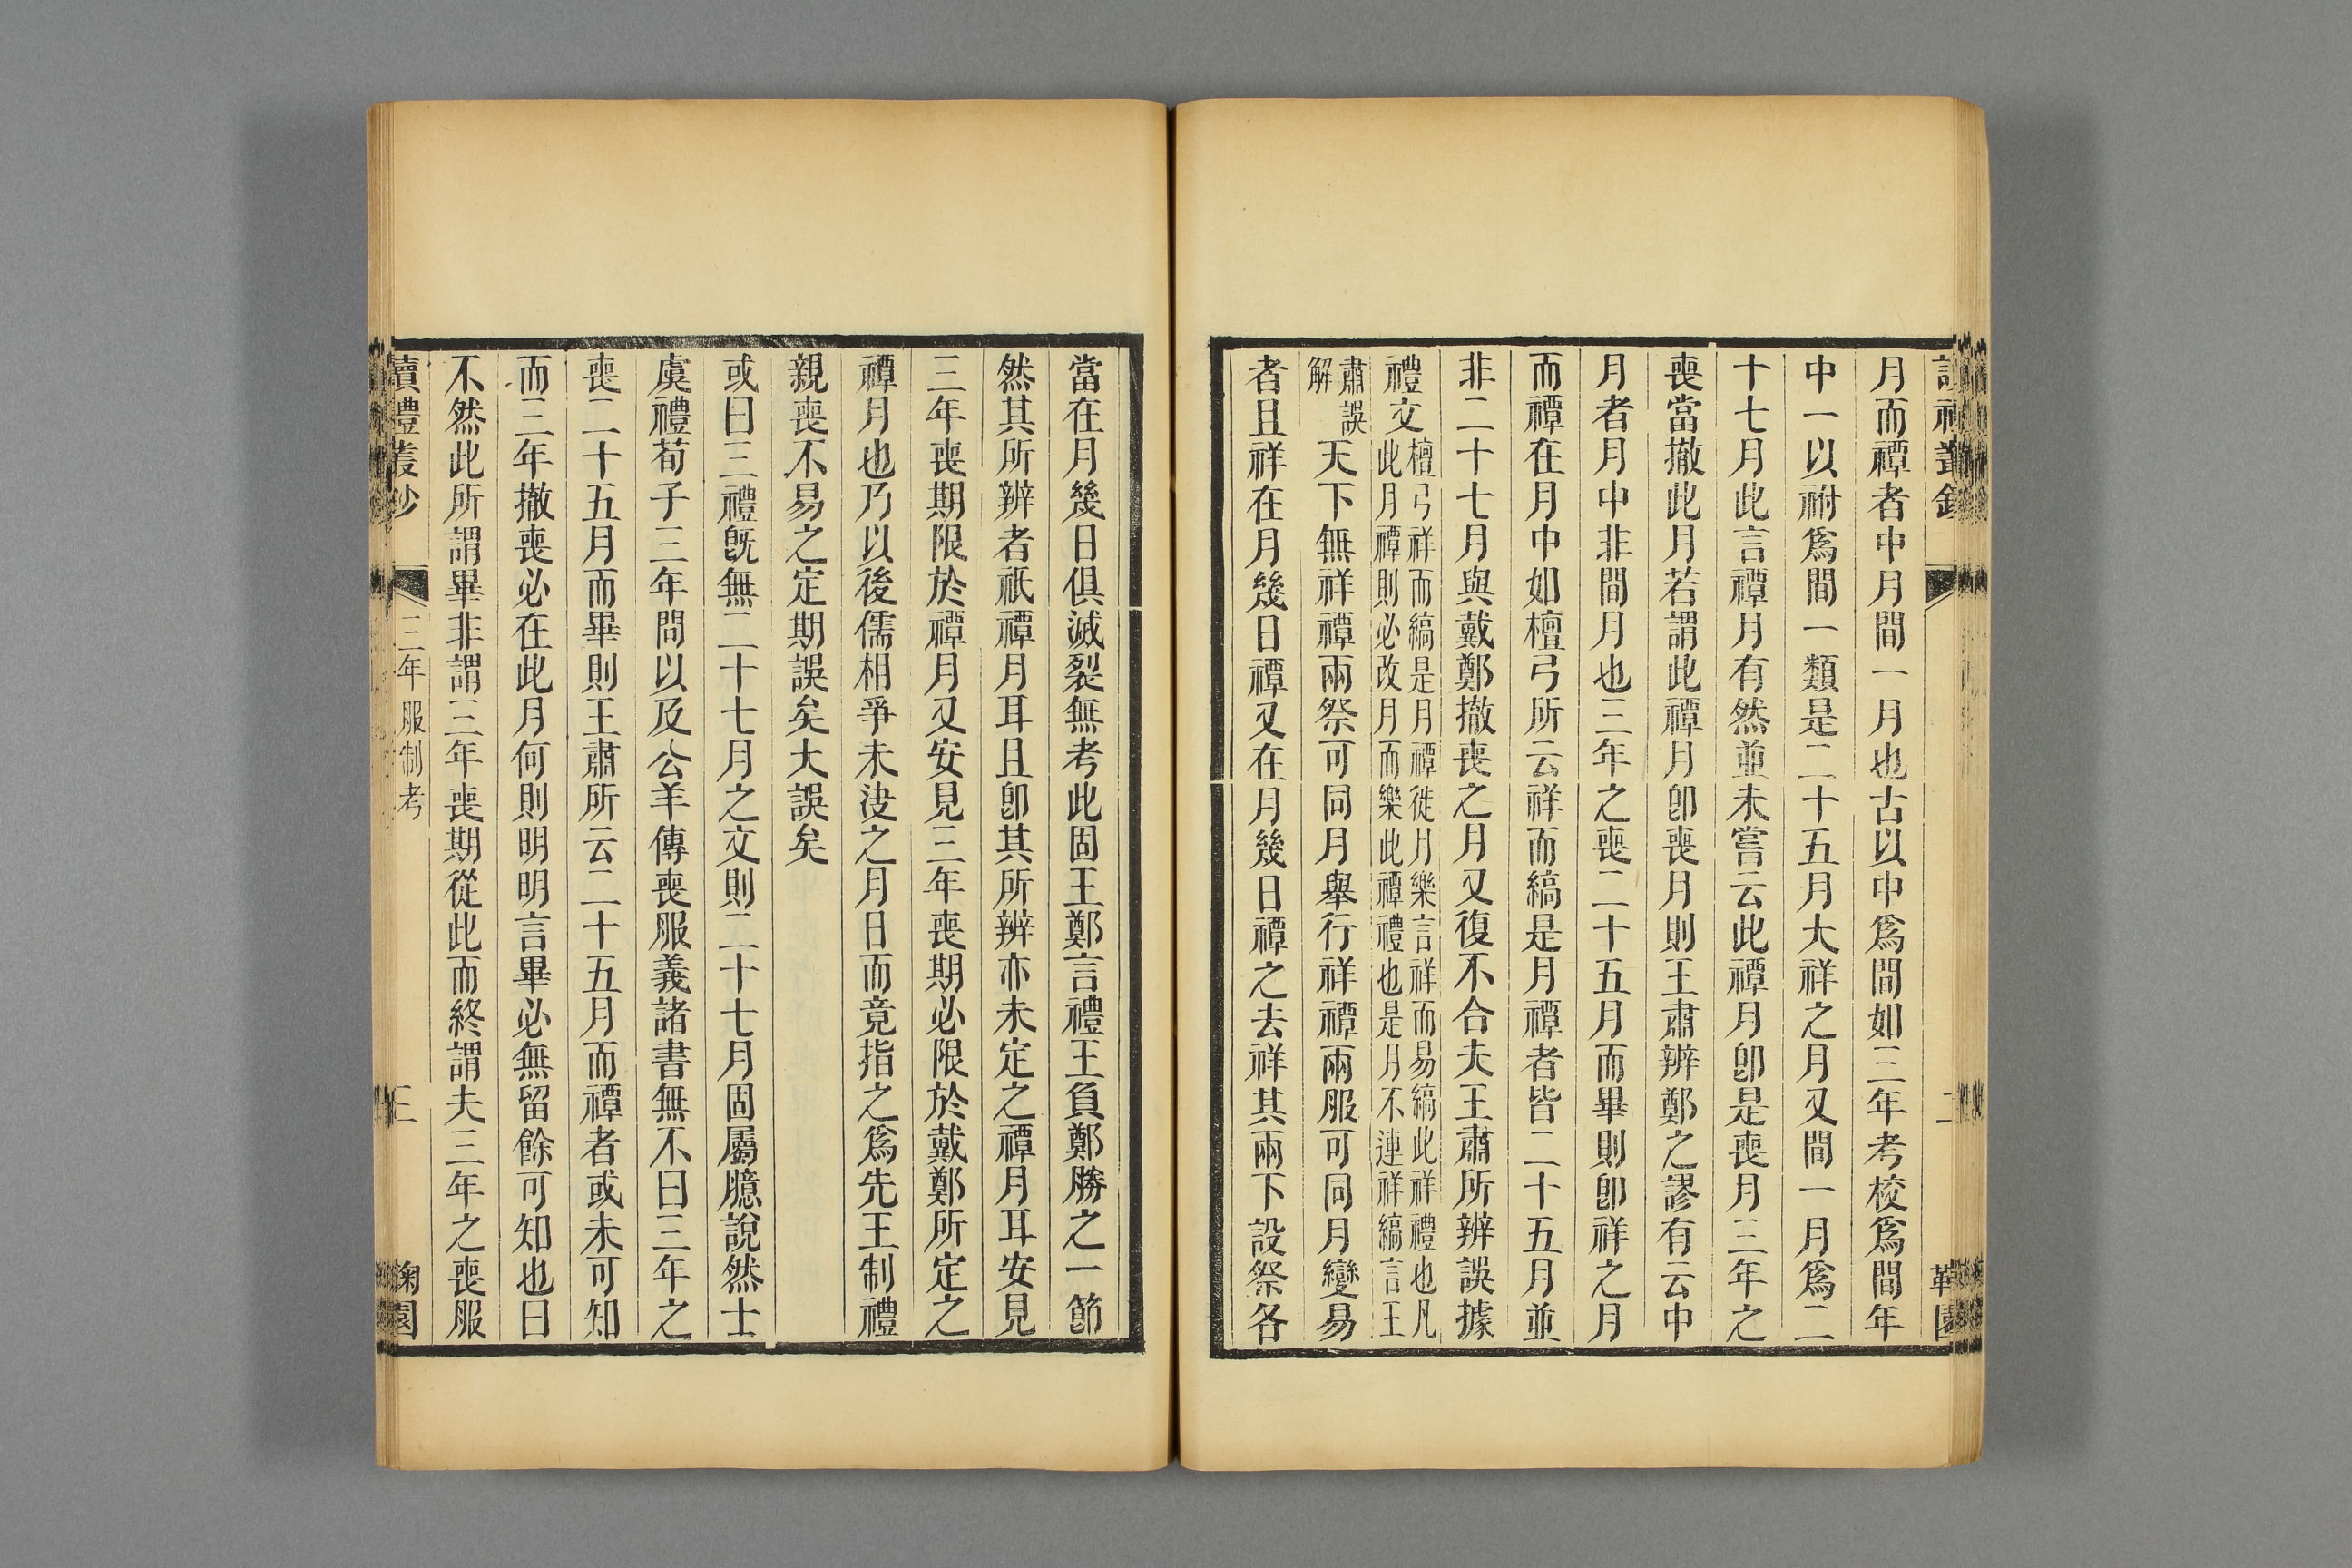 月而禫者中月間一月也古以中爲間如三年考校爲間年
中一以祔爲間一類是二十五月大祥之月又間一月爲二
十七月此言禫月有然並未嘗云此禫月卽是喪月三年之
喪當撤此月若謂此禫月卽喪月則王肅辨鄭之謬有云中
月者月中非間月也三年之喪二十五月而畢則卽祥之月
而禫在月中如檀弓所云祥而縞是月禫者皆二十五月並
非二十七月與戴鄭撤喪之月又復不合夫王肅所辨誤據
禮文檀弓祥而縞是月禫徙月樂言祥而易縞此祥禮也凡
此月禫則必改月而樂此禫禮也是月不連祥縞言王
肅誤
解
天下無祥禫兩祭可同月舉行祥禫兩服可同月變易
者且祥在月幾日禫又在月幾日禫之去祥其兩下設祭各
二
當在月幾日俱滅裂無考此固王鄭言禮王負鄭勝之一節
然其所辨者祇禫月耳且卽其所辨亦未定之禫月耳安見
三年喪期限於禫月又安見三年喪期必限於戴鄭所定之
禫月也乃以後儒相爭未决之月日而竟指之爲先王制禮
親喪不易之定期誤矣大誤矣
或曰三禮旣無二十七月之文則二十七月固屬臆說然士
虞禮荀子三年問以及公羊傳喪服義諸書無不曰三年之
喪二十五月而畢則王肅所云二十五月而禫者或未可知
而三年撤喪必在此月何則明明言畢必無留餘可知也曰
不然此所謂畢非謂三年喪期從此而終謂夫三年之喪服
讀禮叢鈔
三年服制考
三
鞠園